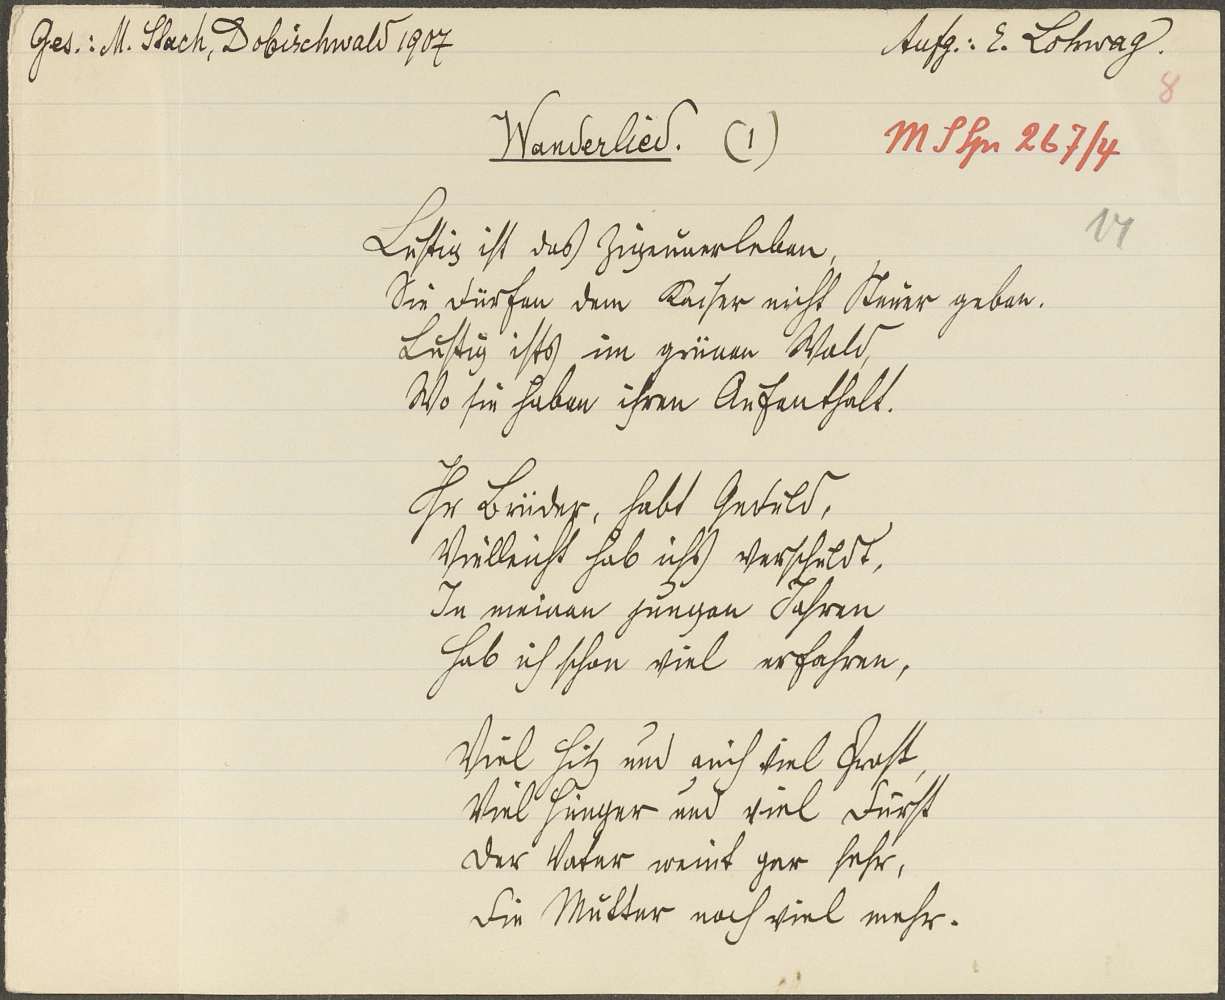 Ges.: M. Stach, Dobischwald 1907
Aufg.: E. Lohwag.
8
Wanderlied. (1)
267/4
Lustig ist das Zigeunerleben,
Sie dürfen dem Kaiser nicht Steuer geben.
Lustig ists im grünen Wald,
Wo sie haben ihren Aufenthalt.
Ihr Brüder, habt Geduld,
Vielleicht hab ichs verschuldt,
In meinen jungen Jahren
Hab ich schon viel erfahren,
Viel Hitz und auch viel Frost,
Viel Hunger und viel Durst
Der Vater weint gar sehr,
Die Mutter noch viel mehr.